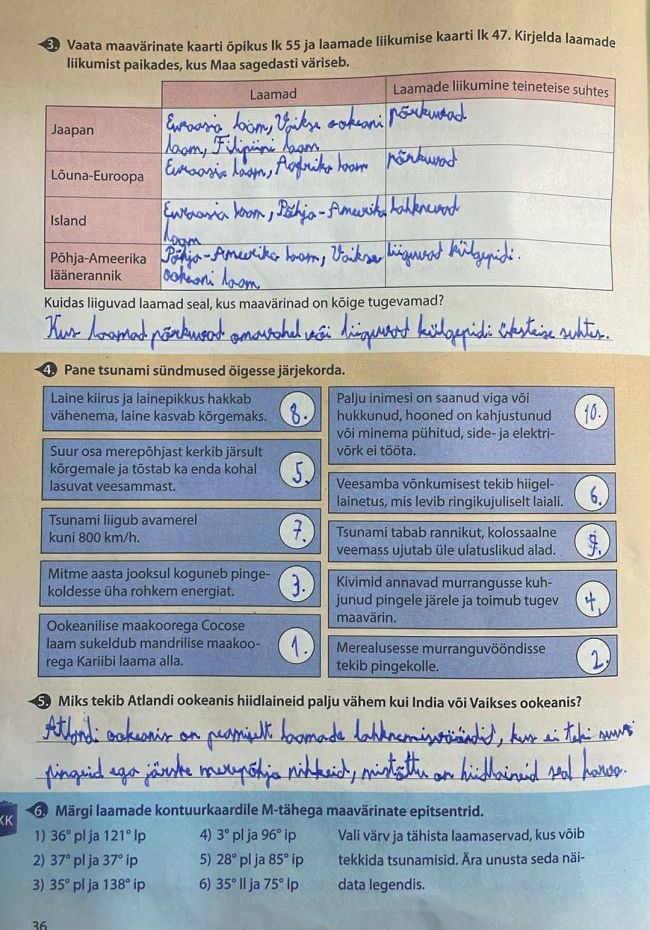 3. Vaata maavärinate kaarti õpikus lk 55 ja laamade liikumise kaarti lk 47. Kirjelda laamade
liikumist paikades, kus Maa sagedasti väriseb.
Laamad
Laamade liikumine teineteise suhtes
Jaapan
Euraasia laam, Vaikse ookeani
laam, Filipiini laam
põrkuvad
Lõuna-Euroopa
Euraasia laam, Aafrika laam
põrkuvad
Island
Euraasia laam, Põhja-Ameerika
laam
lahknevad
Põhja-Ameerika
läänerannik
Põhja-Ameerika laam, Vaikse
ookeani laam
liiguvad külgepidi.
Kuidas liiguvad laamad seal, kus maavärinad on kõige tugevamad?
Kus laamad põrkuvad omavahel või liiguvad külgepidi üksteise suhtes.
4. Pane tsunami sündmused õigesse järjekorda.
Laine kiirus ja lainepikkus hakkab
vähenema, laine kasvab kõrgemaks.
8.
Suur osa merepõhjast kerkib järsult
kõrgemale ja tõstab ka enda kohal
lasuvat veesammast.
5.
Tsunami liigub avamerel
kuni 800 km/h.
7.
Mitme aasta jooksul koguneb pinge-
koldesse üha rohkem energiat.
3.
Ookeanilise maakoorega Cocose
laam sukeldub mandrilise maakoo-
rega Kariibi laama alla.
1.
Palju inimesi on saanud viga või
hukkunud, hooned on kahjustunud
või minema pühitud, side- ja elektri-
võrk ei tööta.
10.
Veesamba võnkumisest tekib hiigel-
lainetus, mis levib ringikujuliselt laiali.
6.
Tsunami tabab rannikut, kolossaalne
veemass ujutab üle ulatuslikud alad.
9.
Kivimid annavad murrangusse kuh-
junud pingele järele ja toimub tugev
maavärin.
4.
Merealusesse murranguvööndisse
tekib pingekolle.
2.
5. Miks tekib Atlandi ookeanis hiidlaineid palju vähem kui India või Vaikses ookeanis?
Atlandi ookeanis on peamiselt laamade lahknemisvööndid, kus ei teki suuri
pingeid ega järske merepõhja nihkeid, mistõttu on hiidlaineid seal harva.
KK
6. Märgi laamade kontuurkaardile M-tähega maavärinate epitsentrid.
1) 36° pl ja 121° lp
2) 37° pl ja 37° ip
3) 35° pl ja 138° ip
4) 3° pl ja 96° ip
5) 28° pl ja 85° ip
6) 35° ll ja 75° lp
Vali värv ja tähista laamaservad, kus võib
tekkida tsunamisid. Ära unusta seda näi-
data legendis.
36